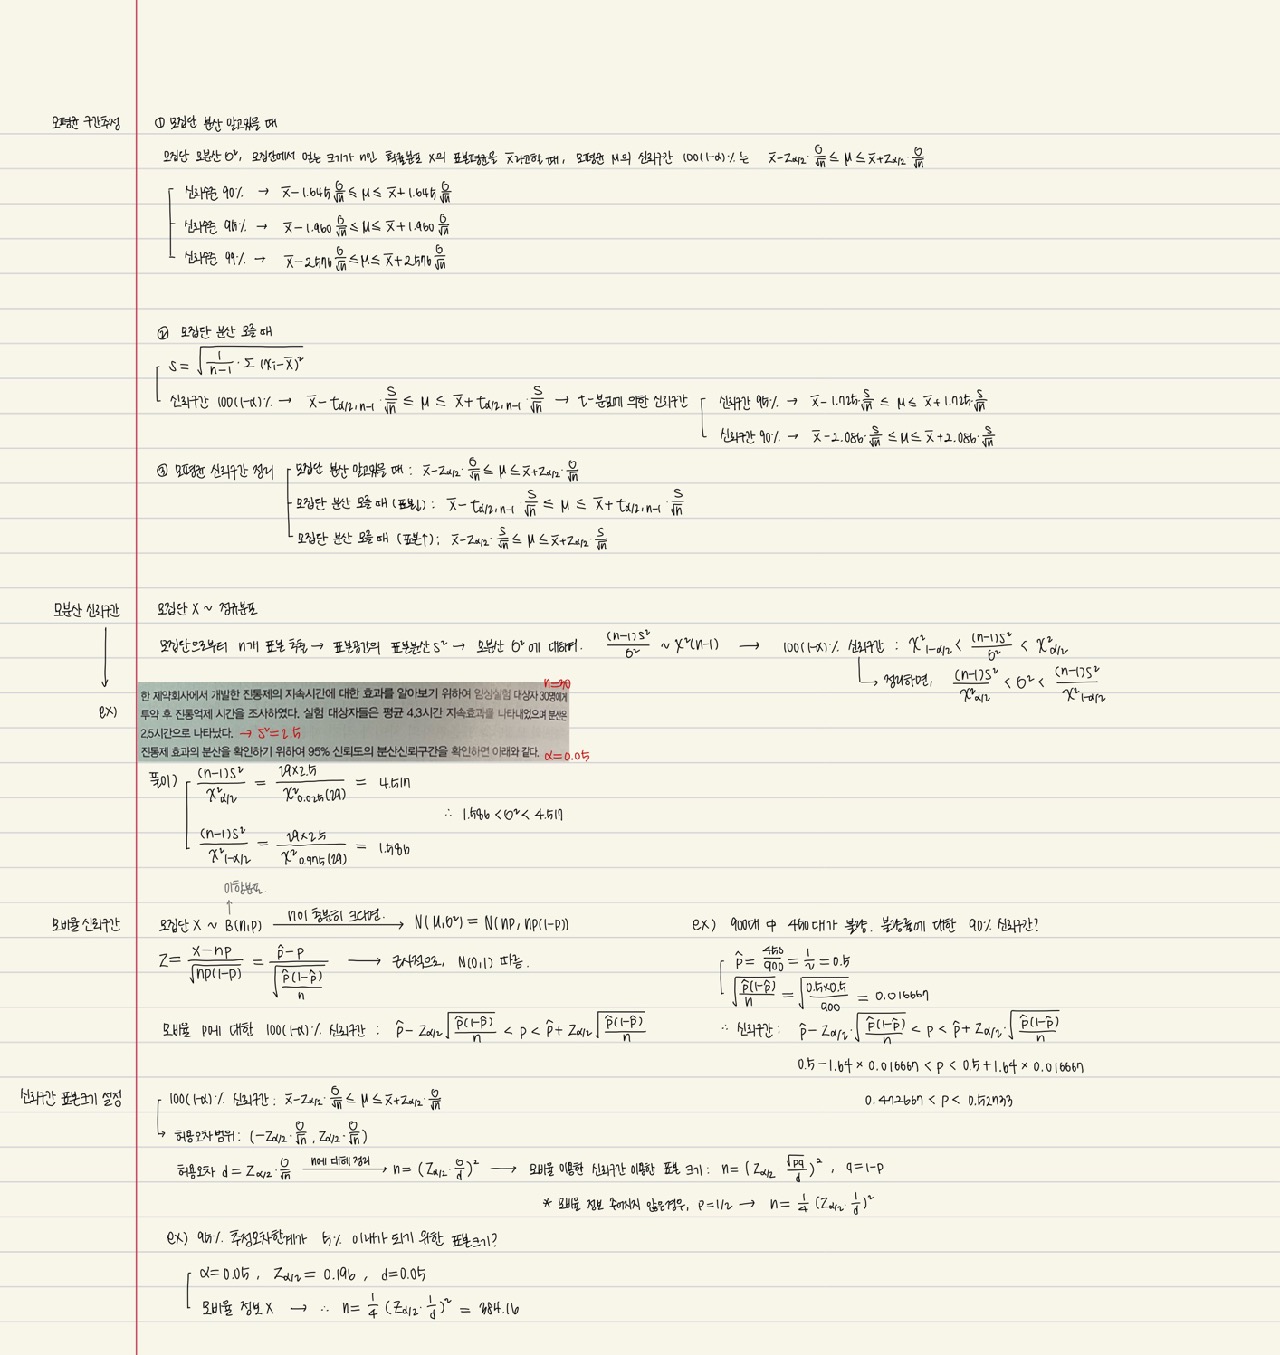 모평균 구간추정
① 모집단 분산 알고있을 때
모집단 모분산 σ², 모집단에서 얻은 크기가 n인 확률분포 X의 표본평균을 x̄라고할 때, 모평균 μ의 신뢰구간 100(1-α)%는 x̄-Zα/2·σ/√n ≤ μ ≤ x̄+Zα/2·σ/√n
신뢰수준 90% → x̄-1.645 σ/√n ≤ μ ≤ x̄+1.645 σ/√n
신뢰수준 95% → x̄-1.960 σ/√n ≤ μ ≤ x̄+1.960 σ/√n
신뢰수준 99% → x̄-2.576 σ/√n ≤ μ ≤ x̄+2.576 σ/√n
② 모집단 분산 모를 때
S = √(1/(n-1) · Σ(xi-x̄)²)
신뢰구간 100(1-α)% → x̄-tα/2,n-1·S/√n ≤ μ ≤ x̄+tα/2,n-1·S/√n → t-분포에 의한 신뢰구간
신뢰구간 95% → x̄-1.725·S/√n ≤ μ ≤ x̄+1.725·S/√n
신뢰구간 90% → x̄-2.086·S/√n ≤ μ ≤ x̄+2.086·S/√n
③ 모평균 신뢰구간 정리
모집단 분산 알고있을 때 : x̄-Zα/2·σ/√n ≤ μ ≤ x̄+Zα/2·σ/√n
모집단 분산 모를 때 (표본↓) : x̄-tα/2,n-1·S/√n ≤ μ ≤ x̄+tα/2,n-1·S/√n
모집단 분산 모를 때 (표본↑) : x̄-Zα/2·S/√n ≤ μ ≤ x̄+Zα/2·S/√n
모분산 신뢰구간
모집단 X ~ 정규분포
모집단으로부터 n개 표본 추출 → 표본평균의 표본분산 S² → 모분산 σ²에 대하여. (n-1)S²/σ² ~ χ²(n-1) → 100(1-α)% 신뢰구간 : χ²1-α/2 < (n-1)S²/σ² < χ²α/2
정리하면, (n-1)S²/χ²α/2 < σ² < (n-1)S²/χ²1-α/2
ex)
n=30
한 제약회사에서 개발한 진통제의 지속시간에 대한 효과를 알아보기 위하여 임상실험 대상자 30명에게
투약 후 진통억제 시간을 조사하였다. 실험 대상자들은 평균 4.3시간 지속효과를 나타내었으며 분산은
2.5시간으로 나타났다. → S²=2.5
진통제 효과의 분산을 확인하기 위하여 95% 신뢰도의 분산신뢰구간을 확인하면 아래와 같다. α=0.05
풀이) (n-1)S²/χ²α/2 = 29×2.5/χ²0.025(29) = 4.517
∴ 1.586 < σ² < 4.517
(n-1)S²/χ²1-α/2 = 29×2.5/χ²0.975(29) = 1.586
이항분포
모비율 신뢰구간
모집단 X ~ B(n,p) n이 충분히 크다면. → N(μ,σ²) = N(np, np(1-p))
Z = (X-np)/√(np(1-p)) = (p̂-p)/√(p̂(1-p̂)/n) → 근사적으로, N(0,1) 따름.
모비율 p에 대한 100(1-α)% 신뢰구간 : p̂-Zα/2√(p̂(1-p̂)/n) < p < p̂+Zα/2√(p̂(1-p̂)/n)
ex) 900대 中 450대가 불량. 불량률에 대한 90% 신뢰구간?
p̂ = 450/900 = 1/2 = 0.5
√(p̂(1-p̂)/n) = √(0.5×0.5/900) = 0.016667
∴ 신뢰구간 : p̂-Zα/2·√(p̂(1-p̂)/n) < p < p̂+Zα/2·√(p̂(1-p̂)/n)
0.5-1.64×0.016667 < p < 0.5+1.64×0.016667
0.472667 < p < 0.527333
신뢰구간 표본크기 설정
100(1-α)% 신뢰구간 : x̄-Zα/2·σ/√n ≤ μ ≤ x̄+Zα/2·σ/√n
허용오차범위 : (-Zα/2·σ/√n, Zα/2·σ/√n)
허용오차 d = Zα/2·σ/√n n에 대해 정리 → n = (Zα/2·σ/d)² → 모비율 이용한 신뢰구간 이용한 표본 크기 : n = (Zα/2 √pq/d)², q=1-p
* 모비율 정보 주어지지 않은경우, p=1/2 → n = 1/4 (Zα/2 1/d)²
ex) 95% 추정오차한계가 5% 이내가 되기 위한 표본크기?
α=0.05, Zα/2 = 0.196, d=0.05
모비율 정보 X → ∴ n = 1/4 (Zα/2·1/d)² = 384.16